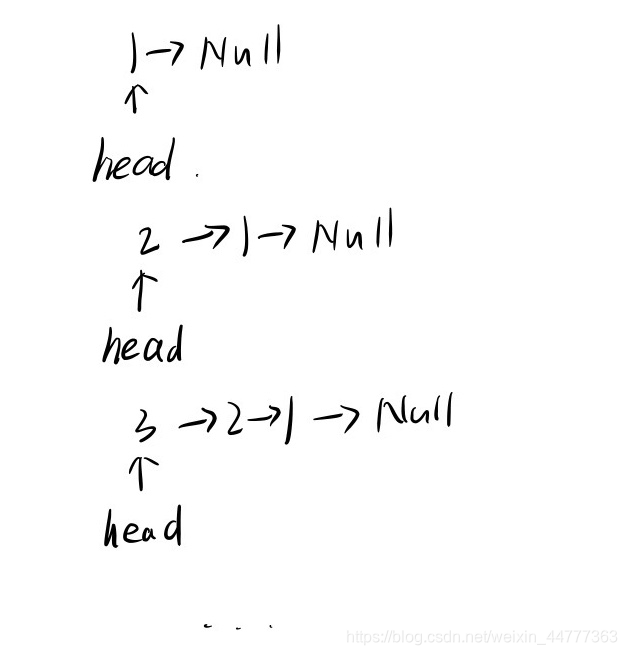 1 → Null
↑
head .
2 → 1 → Null
↑
head
3 → 2 → 1 → Null
↑
head
...
https://blog.csdn.net/weixin_44777363